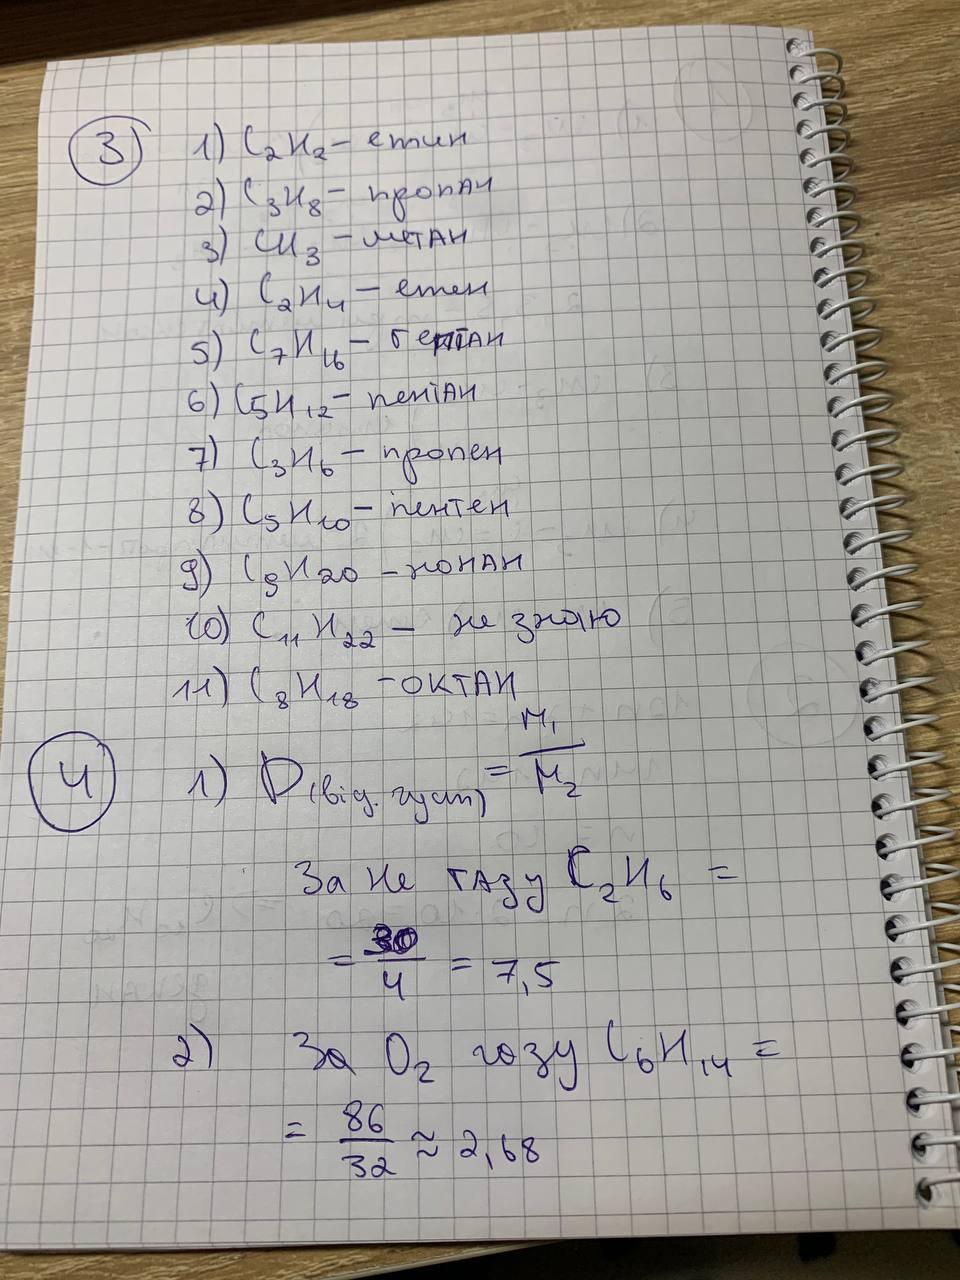 3 1) C₂H₂ – етин
2) C₃H₈ – пропан
3) CH₃ – метан
4) C₂H₄ – етен
5) C₇H₁₆ – гептан
6) C₅H₁₂ – пентан
7) C₃H₆ – пропен
8) C₅H₁₀ – пентен
9) C₉H₂₀ – нонан
10) C₁₁H₂₂ – не знаю
11) C₈H₁₈ – октан
4 1) D(від. густ) = M₁/M₂
За He газу C₂H₆ =
= 30/4 = 7,5
2) За O₂ газу C₆H₁₄ =
= 86/32 ≈ 2,68